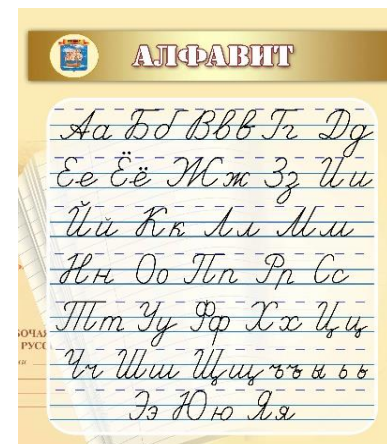 АЛФАВИТ
Аа Бб Ввв Гг Дд
Ее Ёё Жж Зз Ии
Йй Кк Лл Мм
Нн Оо Пп Рр Сс
Тт Уу Фф Хх Цц
Чч Шш Щщ ъъ ы ьь
Ээ Юю Яя